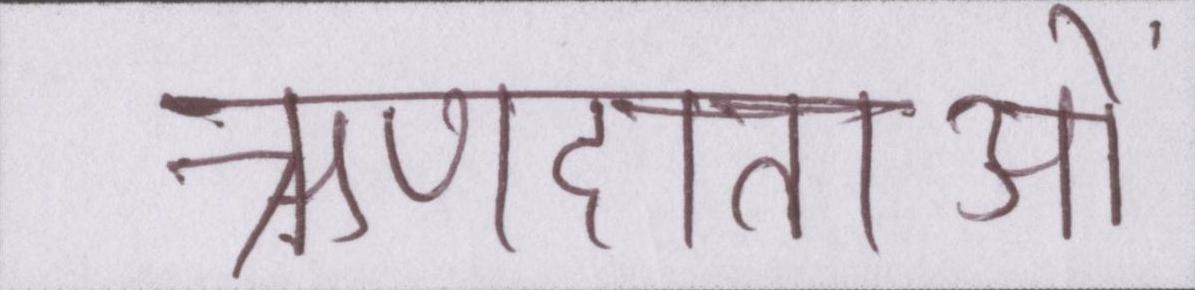 ऋणदाताओं